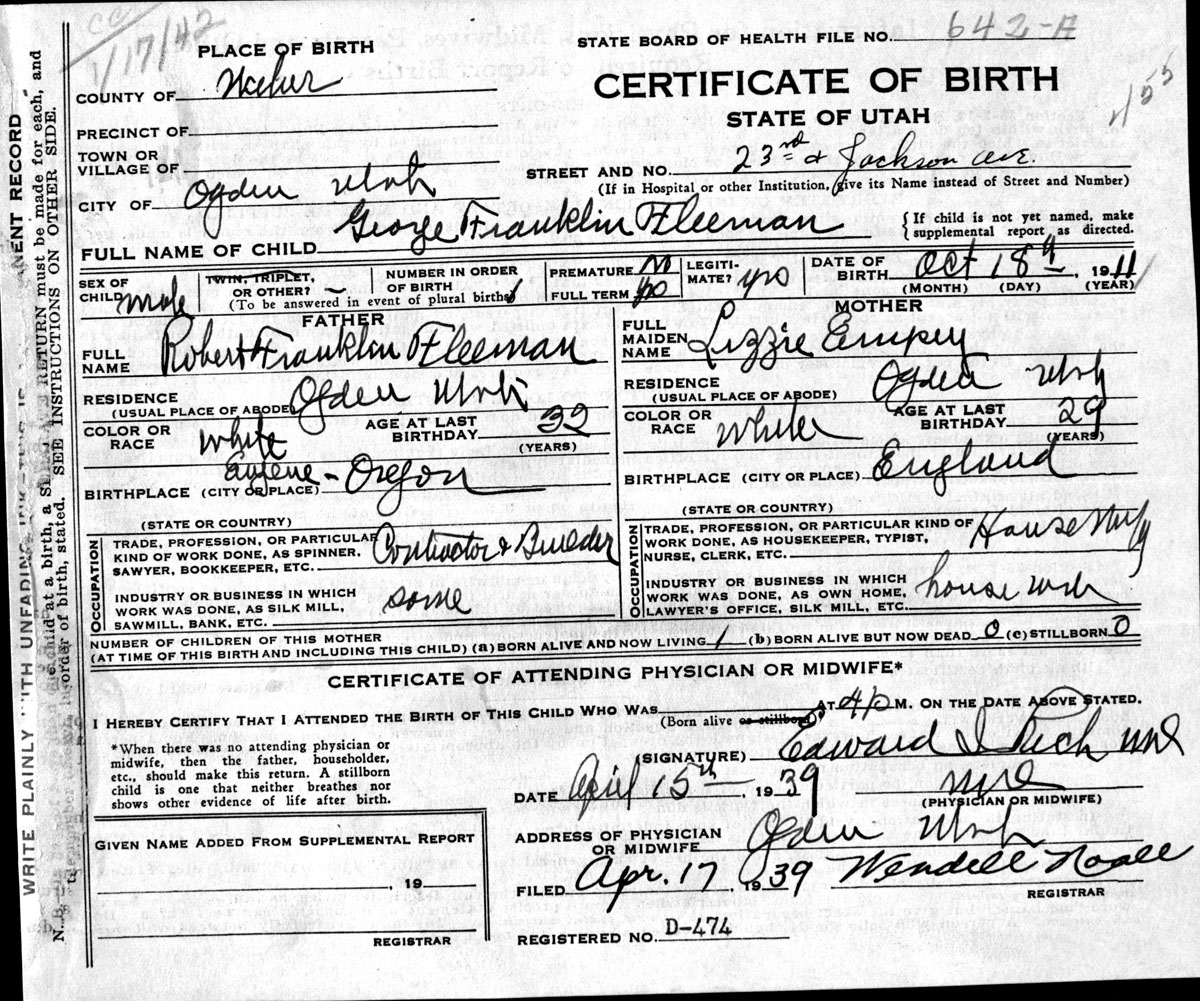 cc
1/17/42
PLACE OF BIRTH
STATE BOARD OF HEALTH FILE NO. 642-A
CERTIFICATE OF BIRTH
STATE OF UTAH
COUNTY OF Weber
PRECINCT OF
TOWN OR
VILLAGE OF
CITY OF Ogden Utah
STREET AND NO. 23rd & Jackson Ave.
(If in Hospital or other Institution, give its Name instead of Street and Number)
FULL NAME OF CHILD George Franklin Fleeman
{If child is not yet named, make
supplemental report as directed.
SEX OF
CHILD male
TWIN, TRIPLET,
OR OTHER? –
NUMBER IN ORDER
OF BIRTH 1
(To be answered in event of plural births)
PREMATURE No
FULL TERM yes
LEGITI-
MATE? yes
DATE OF
BIRTH Oct 18th, 1911
(MONTH) (DAY) (YEAR)
FATHER
FULL
NAME Robert Franklin Fleeman
RESIDENCE
(USUAL PLACE OF ABODE) Ogden Utah
COLOR OR
RACE White
AGE AT LAST
BIRTHDAY 32
(YEARS)
BIRTHPLACE (CITY OR PLACE) Eugene – Oregon
(STATE OR COUNTRY)
OCCUPATION
TRADE, PROFESSION, OR PARTICULAR
KIND OF WORK DONE, AS SPINNER,
SAWYER, BOOKKEEPER, ETC. Contractor & Builder
INDUSTRY OR BUSINESS IN WHICH
WORK WAS DONE, AS SILK MILL,
SAWMILL, BANK, ETC. same
MOTHER
FULL
MAIDEN
NAME Lizzie Empey
RESIDENCE
(USUAL PLACE OF ABODE) Ogden Utah
COLOR OR
RACE White
AGE AT LAST
BIRTHDAY 29
(YEARS)
BIRTHPLACE (CITY OR PLACE) England
(STATE OR COUNTRY)
OCCUPATION
TRADE, PROFESSION, OR PARTICULAR KIND OF
WORK DONE, AS HOUSEKEEPER, TYPIST,
NURSE, CLERK, ETC. House
INDUSTRY OR BUSINESS IN WHICH
WORK WAS DONE, AS OWN HOME,
LAWYER'S OFFICE, SILK MILL, ETC. house
NUMBER OF CHILDREN OF THIS MOTHER
(AT TIME OF THIS BIRTH AND INCLUDING THIS CHILD) (a) BORN ALIVE AND NOW LIVING 1 (b) BORN ALIVE BUT NOW DEAD 0 (c) STILLBORN 0
CERTIFICATE OF ATTENDING PHYSICIAN OR MIDWIFE*
I HEREBY CERTIFY THAT I ATTENDED THE BIRTH OF THIS CHILD WHO WAS AT 4 P M. ON THE DATE ABOVE STATED.
(Born alive or stillborn)
*When there was no attending physician or
midwife, then the father, householder,
etc., should make this return. A stillborn
child is one that neither breathes nor
shows other evidence of life after birth.
(SIGNATURE) Edward I Rich MD
DATE April 15th, 1939 MD
(PHYSICIAN OR MIDWIFE)
ADDRESS OF PHYSICIAN
OR MIDWIFE Ogden Utah
FILED Apr. 17, 1939 Wendell Noall
REGISTRAR
REGISTERED NO. D-474
GIVEN NAME ADDED FROM SUPPLEMENTAL REPORT
, 19
REGISTRAR
WRITE PLAINLY WITH UNFADING
NENT RECORD
RETURN must be made for each, and
order of birth, stated. SEE INSTRUCTIONS ON OTHER SIDE.